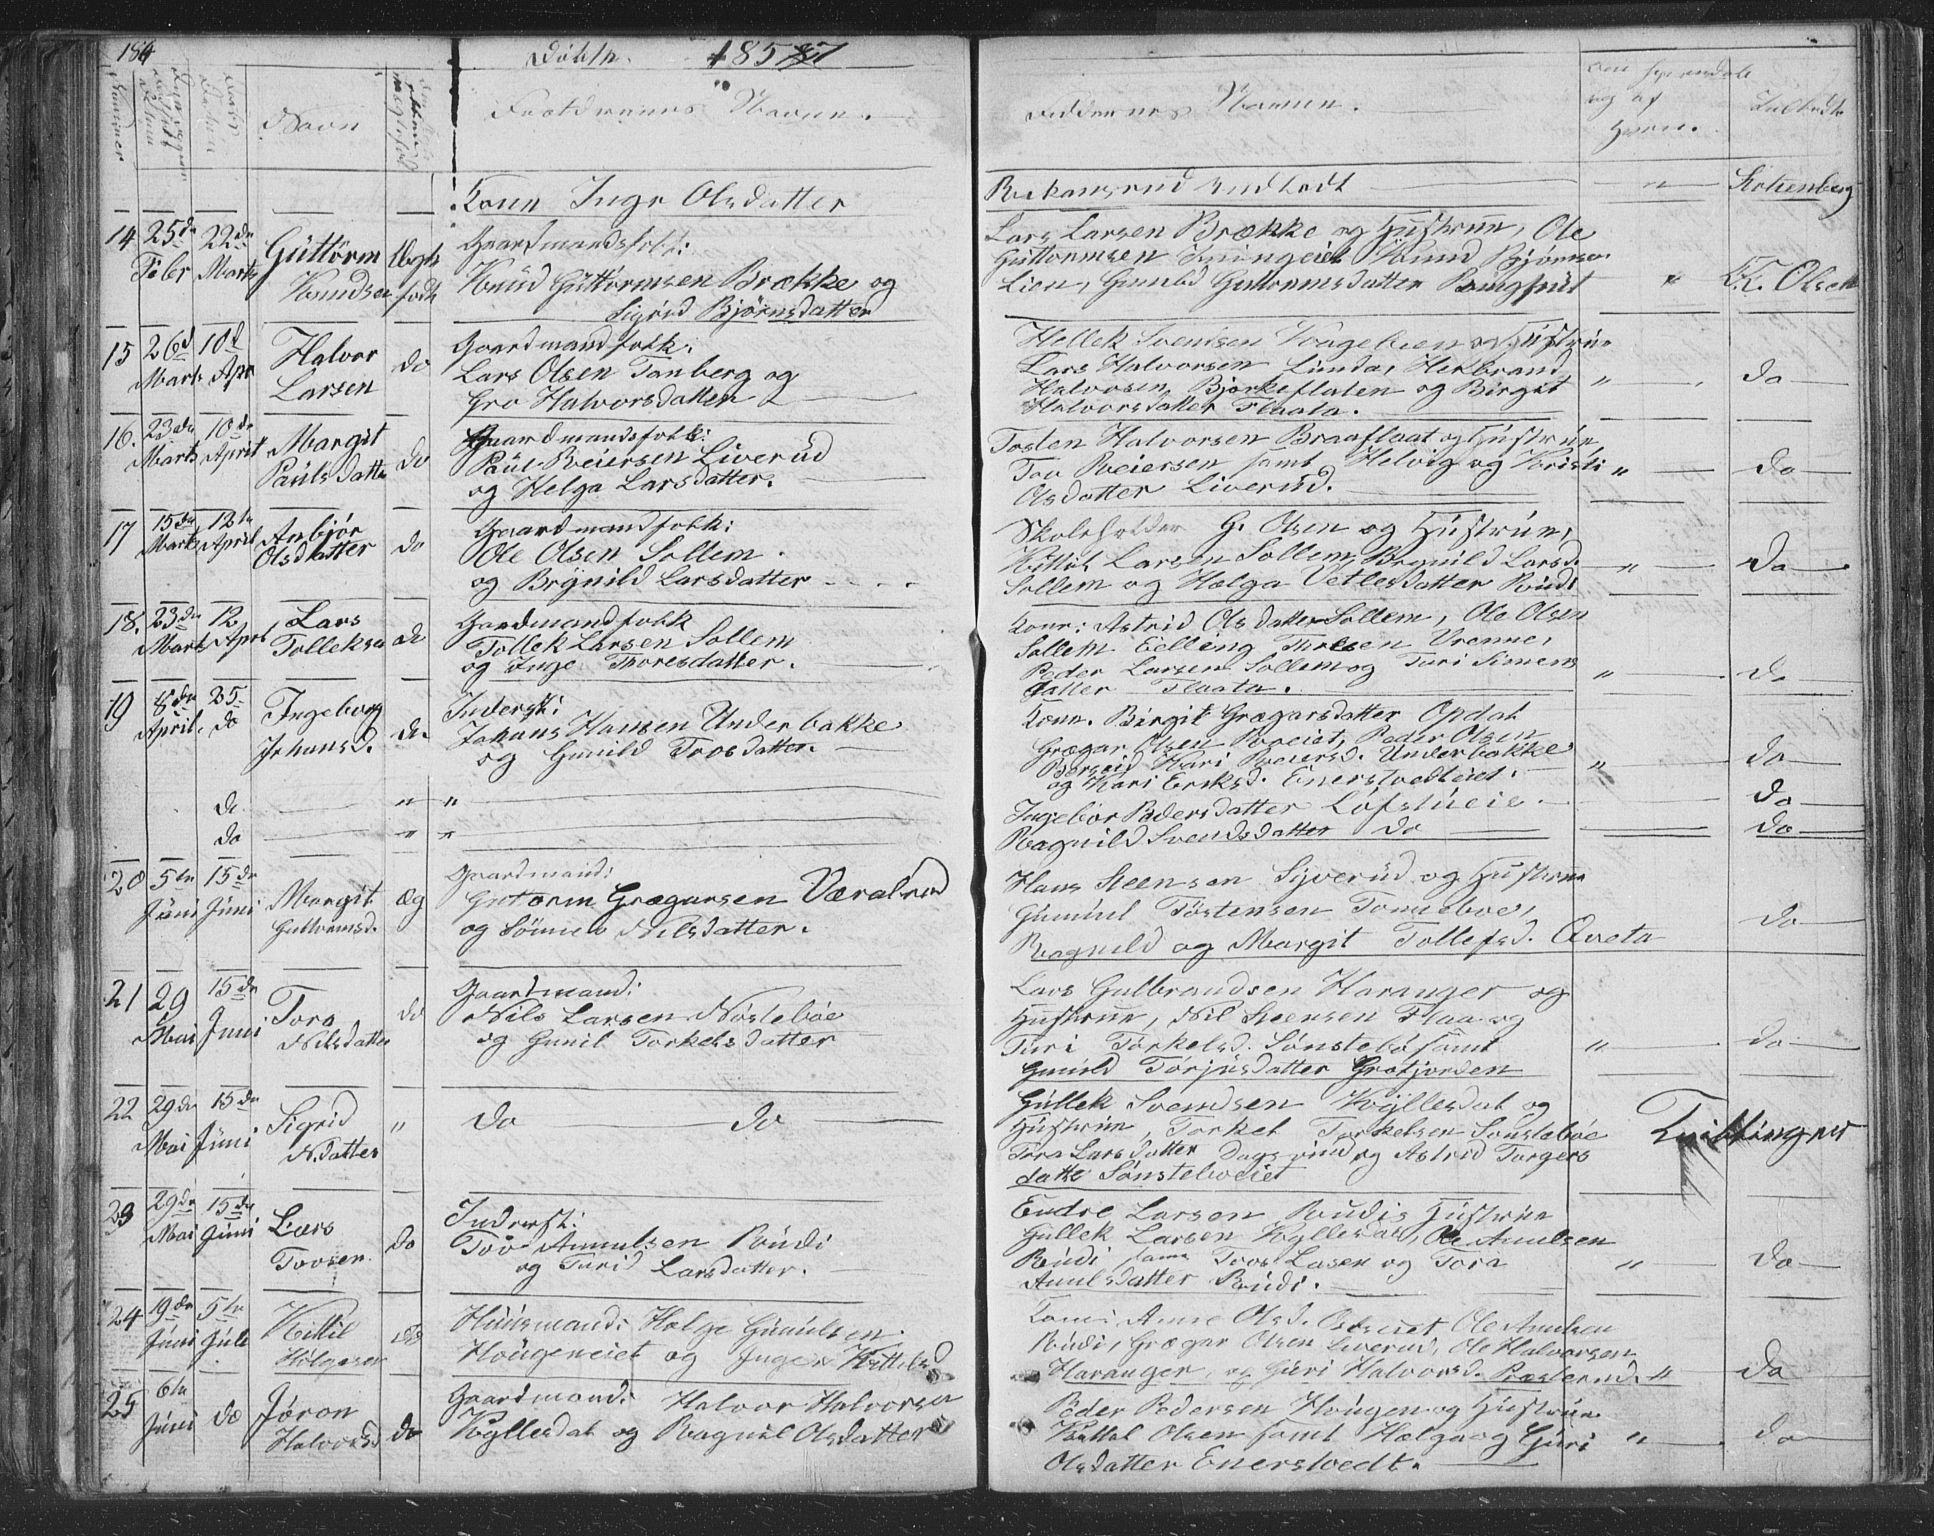 184
Døbte 1857
Nummer
Navn
Forældrenes Navne.
Faddernes Navne.
og af
hvem.
Kone Inge Olsdatter
14 25de Feber 22de Marts Guttorm Knudsen Ægte født
Gaardmandsfolk:
Knud Guttormsen Brække og
Sigrid Bjørnsdatter
15 26d Marts 10d Apr Halvor Larsen do
Gaardmandsfolk:
Lars Olsen Tanberg og
Gro Halvorsdatter
16. 23de Marts 10de April Margit Paulsdatter do
Gaardmandsfolk:
Paul Reiersen Liverud
og Helga Larsdatter.
17 15de Marts 12te April Anbjør Olsdatter do
Gaardmandfolk:
Ole Olsen Sollem
og Brynild Larsdatter
18. 23de Marts 12 April Lars Tolleksen do
Gardmandfolk
Tollek Larsen Sollem
og Inge Thoresdatter.
19 8de April. 25 do Ingeborg Johansd. do
Inderst:
Johans Hansen Underbakke
og Gunild Trosdatter.
do " "
do " "
20 5te Juni 15de Juni Margit Guttormsd. Æg
Gaardmand:
Gutorm Grægarsen Væralrud
og Sønnev Nilsdatter.
21 29 Mai 15de Juni Tora Nilsdatter do
Gaardmand:
Nils Larsen Nøstebøe
og Gunil Torkelsdatter
22 29de Mai 15de Juni Sigrid N.datter "
do do
23 29de Mai 15de Juni Lars Tovsen do
Inderst:
Tov Amulsen Rudi
og Turid Larsdatter.
24 19de Juni 5te Juli Kittil Helgesen do
Huusmand: Helge Gunulsen
Hougeneiet og Inge Kittelsd
25 6te Juni do Jøron Halvorsd do
Gaardmand: Halvor Halvorsen
Kyllesdal og Ragnil Olsdatter
Rukansrud Rudtedt " Kohenberg
Lars Larsen Brække og Hustrue, Ole
Guttormsen Kringeiet Knud Bjørnsen
Lien, Gunild Guttormsdatter " T. T. Olsen
Hellek Svensen og Hustru
Lars Halvorsen Linda, Herbrand
Halvosen Bjørkeflaten og Birgit " do
Halvorsdatter Flaata.
Tosten Halvorsen Braaflaat og Hustrue,
Tov Reiersen samt Helvig og Kristi " do
Olsdatter Liverud.
Skoleholder G. Olsen og Hustrue,
Kittil Larsen Sollem, Brynild Larsd.
Sollem og Helga Vetlesdatter Rudi " do
Kone: Astrid Olsdatter Sollem, Ole Olsen
Sollem Eelling Thorsen Vrenne,
Peder Larsen Sollem og Turi Simens
datter Flaata. " do
Kone. Birgit Grægarsdatter Opdal
Grægar Olsen Roeiet, Peder Olsen
Borseid Kari Reiersd. Underbakke
og Kari Eriksd. Enerstvedteiet. " do
Ingebor Pedersdatter Løfstueie. do
Ragnild Svendsdatter do do
Hans Steensen Syverud og Hustrue
Gunnul Tostensen Tonneboe,
Ragnild og Margit Tollefsd. Qveta do
Lars Gulbrandsen Haranger og
Hustrue, Nil Steensen Flaa og
Turi Torkelsd. Sønstebø samt " do
Gunild Torjusdatter Grøtjorden
Gullek Svendsen Kyllesdal og
Hustrue, Torkel Torkelsen Sønstebøe
Tora Larsdatter Dagsvind og Astrid Torgers
datte Sønsteboeiet
Endre Larsen Rudis Hustrue
Gullek Larsen Kyllesdal, Ole Amulsen
Rudi samt Tov Lasen og Tora " do
Amulsdatter Rudi.
Kone: Anne Olsd. Ole Amulsen
Rudi, Grægar Olsen Liverud, Ole Halvorsen
Haranger, og Guri Halvorsd. " do
Peder Pedersen Hougen og Hustrue
Kittel Olsen samt Helga og Guri " do
Olsdatter Enerstvedt.